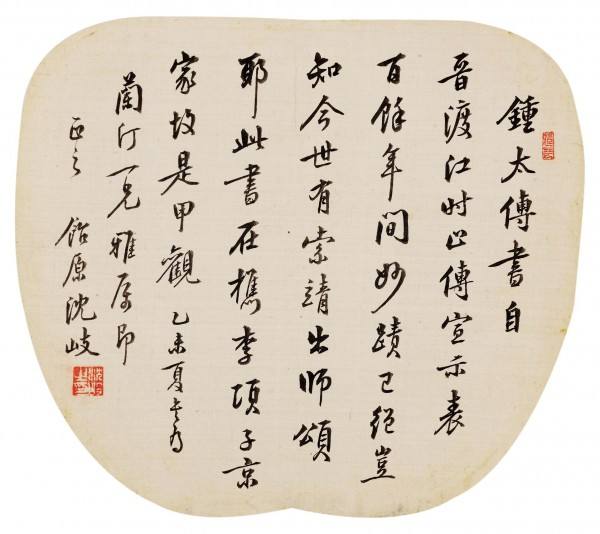 鍾太傅書自
晉渡江時止傳宣示表
百餘年間妙蹟已絕豈
知今世有索靖出師頌
耶此書在檇李項子京
家故是甲觀 乙未夏為
蘭汀一兄雅属即
正之 飴原沈岐